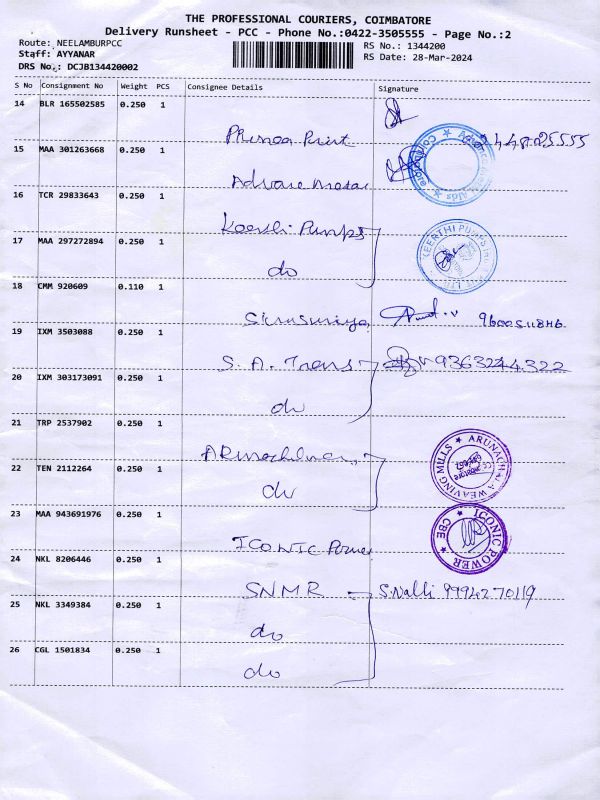 THE PROFESSIONAL COURIERS, COIMBATORE
Delivery Runsheet - PCC - Phone No.:0422-3505555 - Page No.:2
Route: NEELAMBURPCC
RS No.: 1344200
Staff: AYYANAR
RS Date: 28-Mar-2024
DRS No.: DCJB134420002
S No Consignment No Weight PCS Consignee Details Signature
14 BLR 165502585 0.250 1
Print
15 MAA 301263668 0.250 1
16 TCR 29833643 0.250 1
Pumps
KEERTHI PUMPS
17 MAA 297272894 0.250 1
do
18 CMM 920609 0.110 1
19 IXM 3503088 0.250 1
S. A. Trans 9363244322
20 IXM 303173091 0.250 1
do
21 TRP 2537902 0.250 1
ARUNACHALA WEAVING MILLS
22 TEN 2112264 0.250 1
do
23 MAA 943691976 0.250 1
ICONIC Power
ICONIC POWER CBE
24 NKL 8206446 0.250 1
SNMR S.Nalli 9994270119
25 NKL 3349384 0.250 1
do
26 CGL 1501834 0.250 1
do